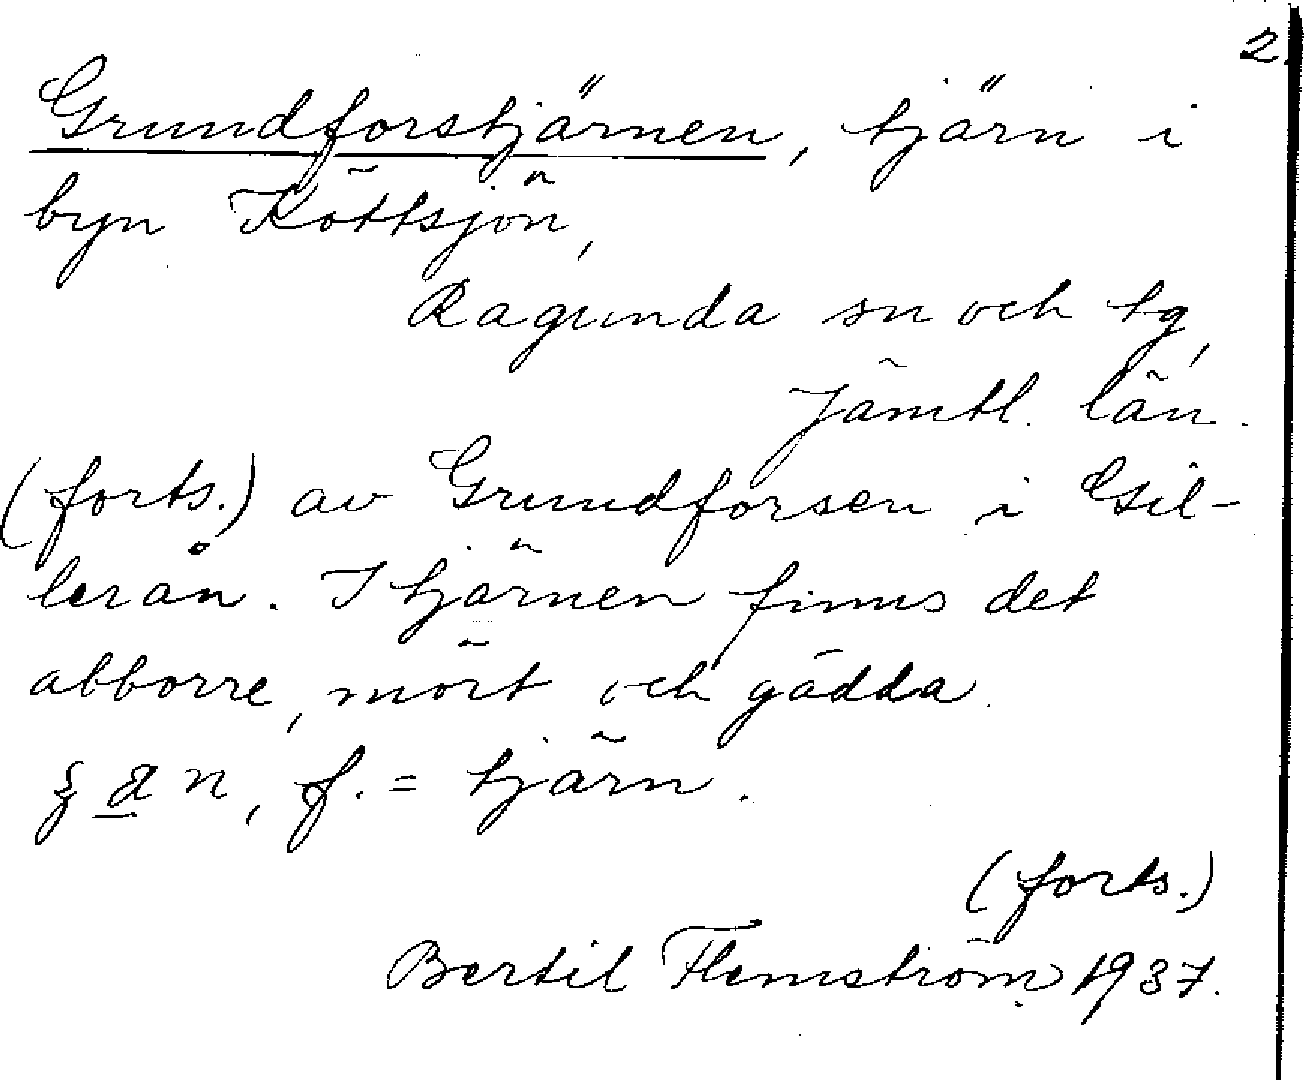 2.
Grundforstjärnen, tjärn i
byn Köttsjön,
Ragunda sn och tg,
Jämtl. län.
(forts.) av Grundforsen i Gil-
lerån. I tjärnen finns det
abborre, mört och gädda.
f. = tjärn.
(forts.)
Bertil Flemström 1937.